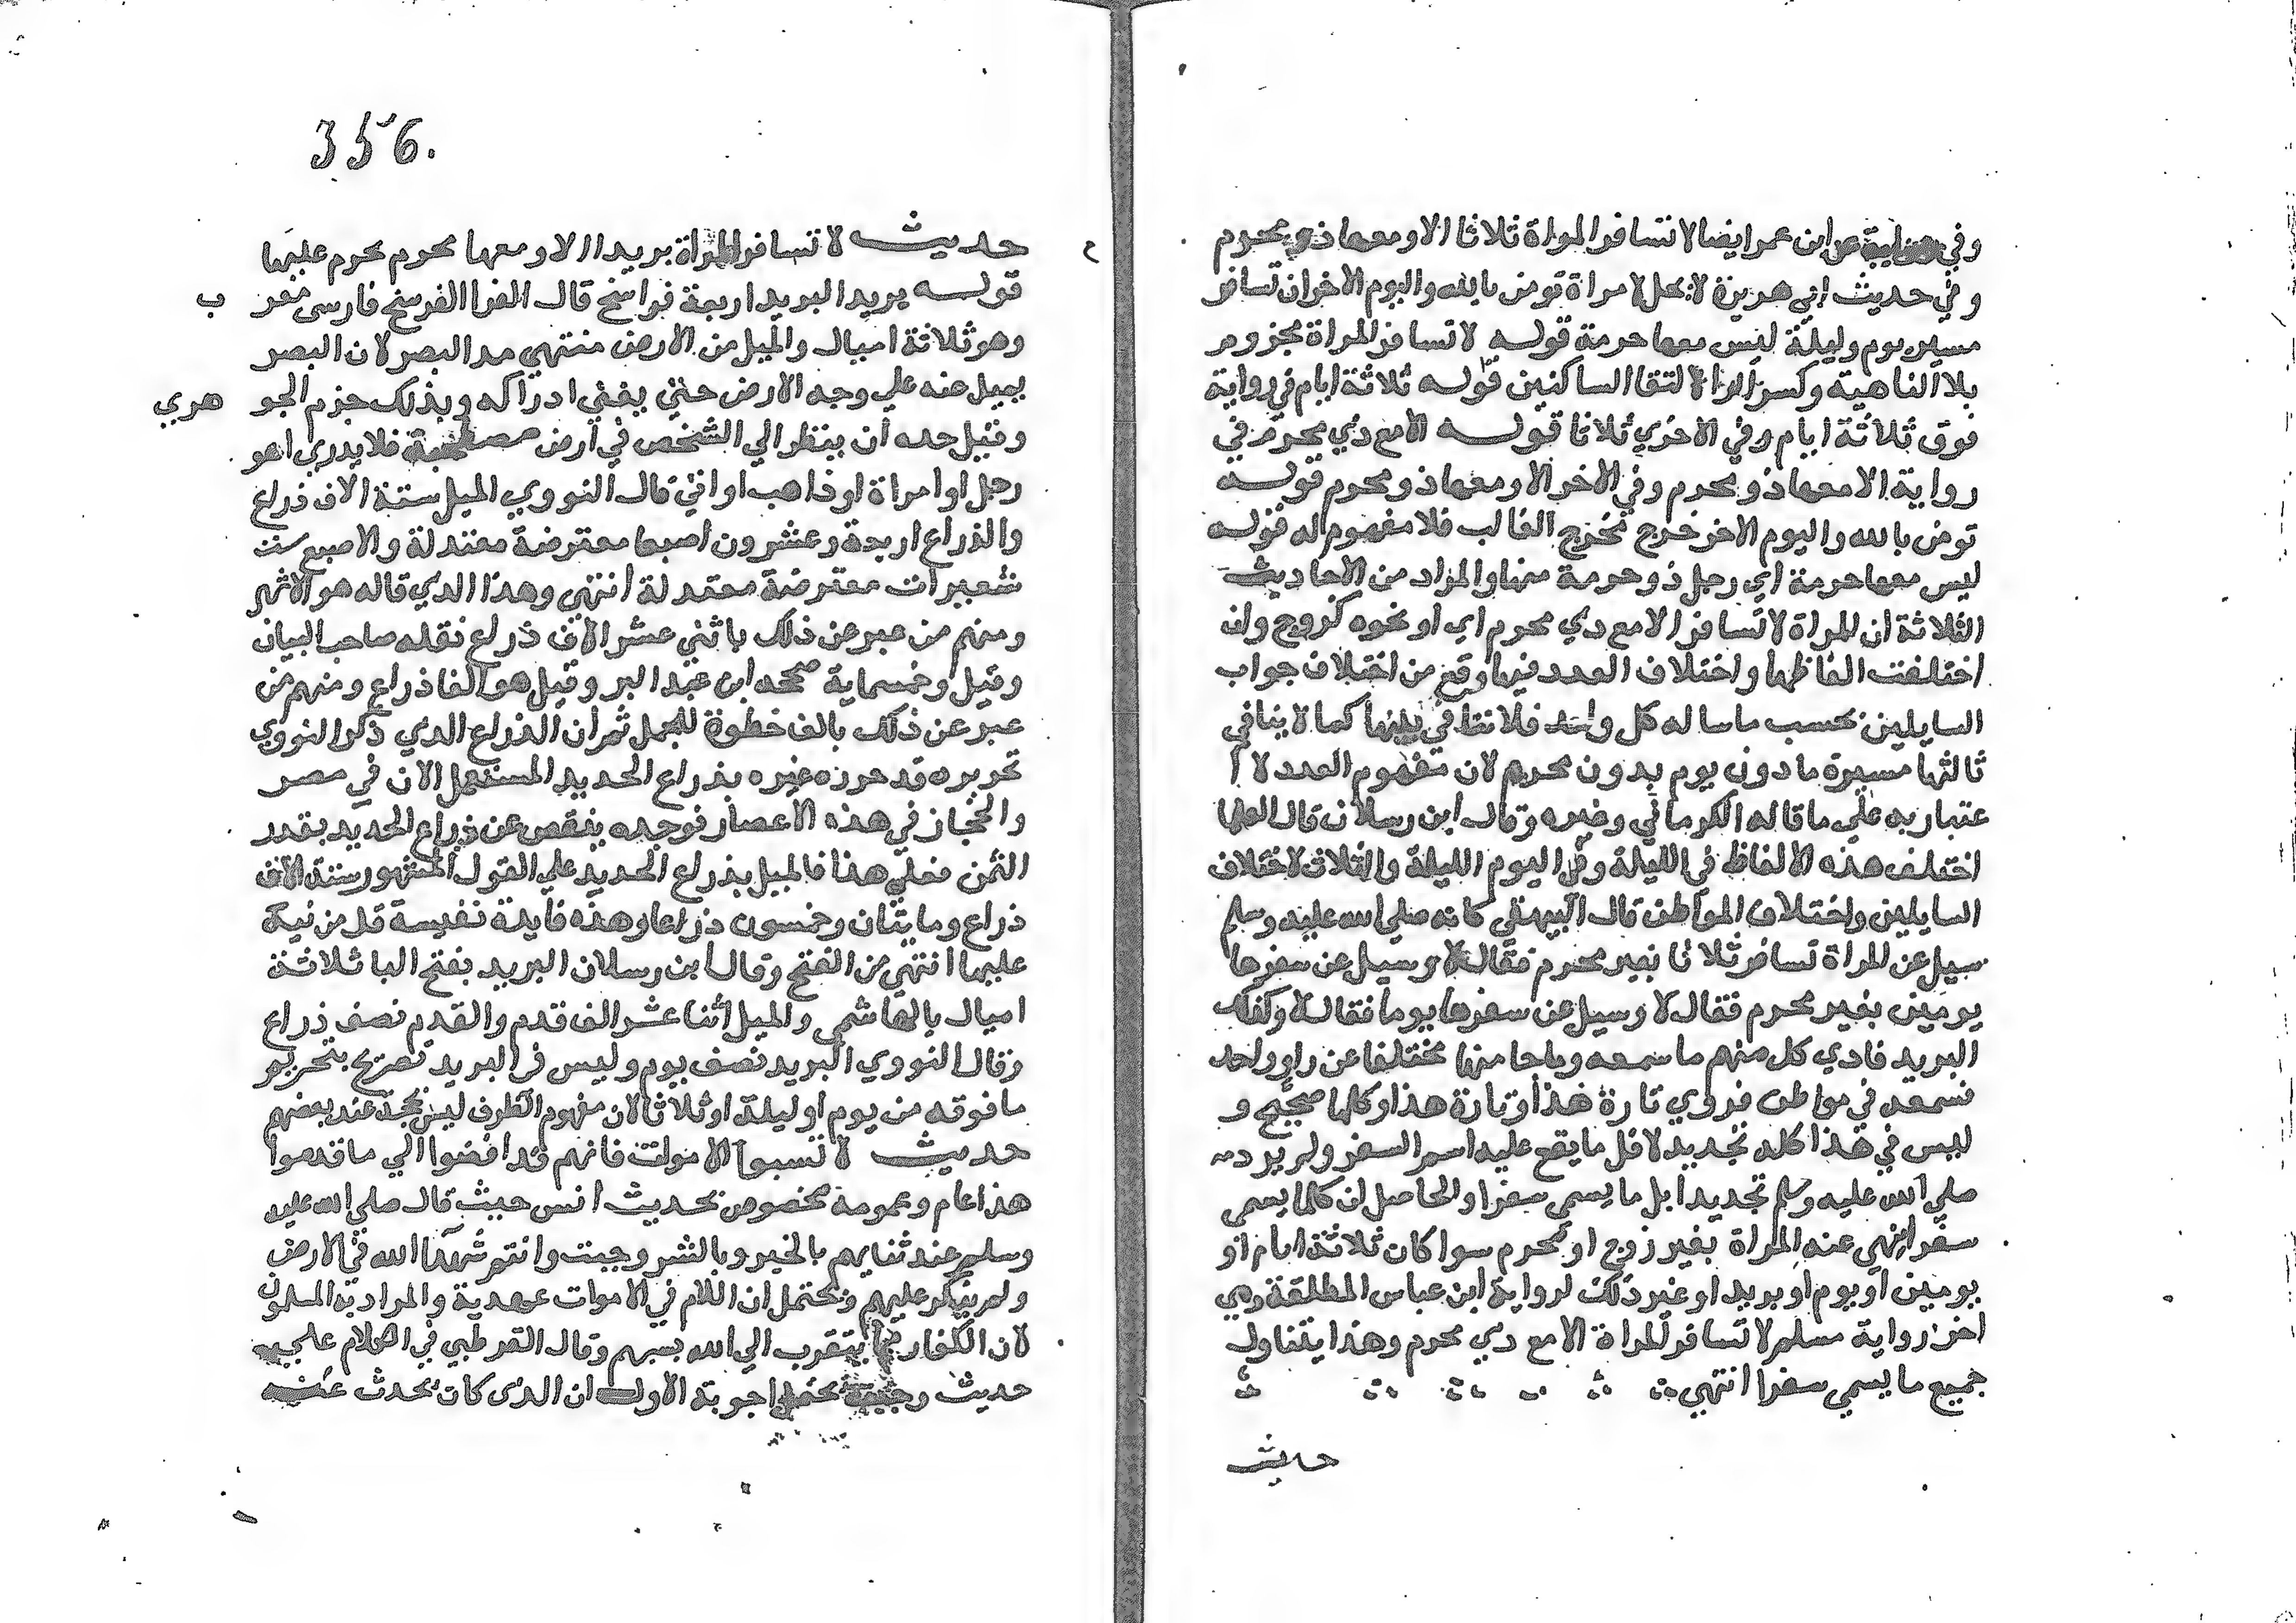 وفي رواية عن ابن عمر ايضا لا تسافر المراة ثلاثا الا ومعها ذو محرم
وفي حديث ابي هريرة لا يحل لامراة تومن بالله واليوم الاخر ان تسافر
مسيرة يوم وليلة ليس معها حرمة قوله لا تسافر المراة مجزوم
بلا الناهية وكسر الراء لالتقا الساكنين قوله ثلاثة ايام في رواية
فوق ثلاثة ايام وفي الاخري ثلاثا قوله الا مع ذي محرم في
رواية الا معها ذو محرم وفي الاخر الا ومعها ذو محرم قوله
تومن بالله واليوم الاخر خرج مخرج الغالب فلا مفهوم له قوله
ليس معها حرمة اي رجل ذو حرمة منها والمراد من الاحاديث
الثلاثة ان المراة لا تسافر الا مع ذي محرم اي او نحوه كزوج وان
اختلفت الفاظها واختلاف العدد فيها وقع من اختلاف جواب
السايلين بحسب ما ساله كل واحد فلا تنافي بينها كما لا ينافي
ثالثها مسيرة ما دون يوم بدون محرم لان مفهوم العدد لا ا
عتبار به علي ما قاله الكرماني وغيره وقال ابن رسلان قال العلما
اختلف هذه الالفاظ في الليلة وفي اليوم الليلة والثلاث لاختلاف
السايلين واختلاف المواطن قال البيهقي كانه صلي الله عليه وسلم
سيل عن المراة تسافر ثلاثا بغير محرم فقال لا وسيل عن سفرها
يومين بغير محرم فقال لا وسيل عن سفرها يوما فقال لا وكذلك
البريد فادي كل منهم ما سمعه وما جا منها مختلفا عن راو واحد
فسمعه في مواطن فروي تارة هذا وتارة هذا وكلها صحيح و
ليس في هذا كله تحديد لاقل ما يقع عليه اسم السفر ولم يرد
صلي الله عليه وسلم تحديد اقل ما يسمي سفرا والحاصل ان كلما يسمي
سفرا نهي عنه المراة بغير زوج او محرم سوا كان ثلاثة ايام او
يومين او يوم او بريد او غير ذلك لرواية ابن عباس المطلقة وهي
اخر رواية مسلم لا تسافر المراة الا مع ذي محرم وهذا يتناول
جميع ما يسمي سفرا انتهي
حديث
356.
حديث لا تسافر المراة بريدا الا ومعها محرم يحرم عليها
قوله بريدا البريد اربعة فراسخ قال الفرا الفرسخ فارسي معر ب
وهو ثلاثة اميال والميل من الارض منتهي مد البصر لان البصر
يميل عنه علي وجه الارض حتي يفني ادراكه وبذلك جزم الجو هري
وقيل حده ان ينظر الي الشخص في ارض مصطحبة فلا يدري اهو
رجل او امراة او ذاهب او اتي قال النووي الميل ستة الاف ذراع
والذراع اربعة وعشرون اصبعا معترضة معتدلة والاصبع ست
شعيرات معترضة معتدلة انتهي وهذا الذي قاله هو الاشهر
ومنهم من عبر عن ذلك باثني عشر الاف ذراع نقله صاحب البيان
وقيل وخمسماية صححه ابن عبد البر وقيل هو الفا ذراع ومنهم من
عبر عن ذلك بالف خطوة للجمل ثم ان الذراع الذي ذكر النووي
تحريره قد حرره غيره بذراع الحديد المستعمل الان في مصر
والحجاز في هذه الاعصار فوجده ينقص عن ذراع الحديد بقدر
الثمن فعلي هذا فالميل بذراع الحديد علي القول المشهور ستة الاف
ذراع ومايتان وخمسون ذراعا وهذه فايدة نفيسة قل من نبه
عليها انتهي من الفتح وقال ابن رسلان البريد بفتح البا ثلاثة
اميال بالهاشمي والميل اثنا عشر الف قدم والقدم نصف ذراع
وقال النووي البريد نصف يوم وليس في البريد تصريح بتحريم
ما فوقه من يوم او ليلة او ثلاثا لان مفهوم الظرف ليس بحجة عند بعضهم
حديث لا تسبوا الاموات فانهم قد افضوا الي ما قدموا
هذا عام وعمومه مخصوص بحديث انس حيث قال صلي الله عليه
وسلم عند ثنايهم بالخير وبالشر وجبت وانتم شهدا الله في الارض
ولم ينكر عليهم ويحتمل ان اللام في الاموات عهدية والمراد به المسلمون
لان الكفار مما يتقرب الي الله بسبهم وقال القرطبي في الكلام علي
حديث وجبت يحتمل اجوبة الاول ان الذي كان يحدث عنه